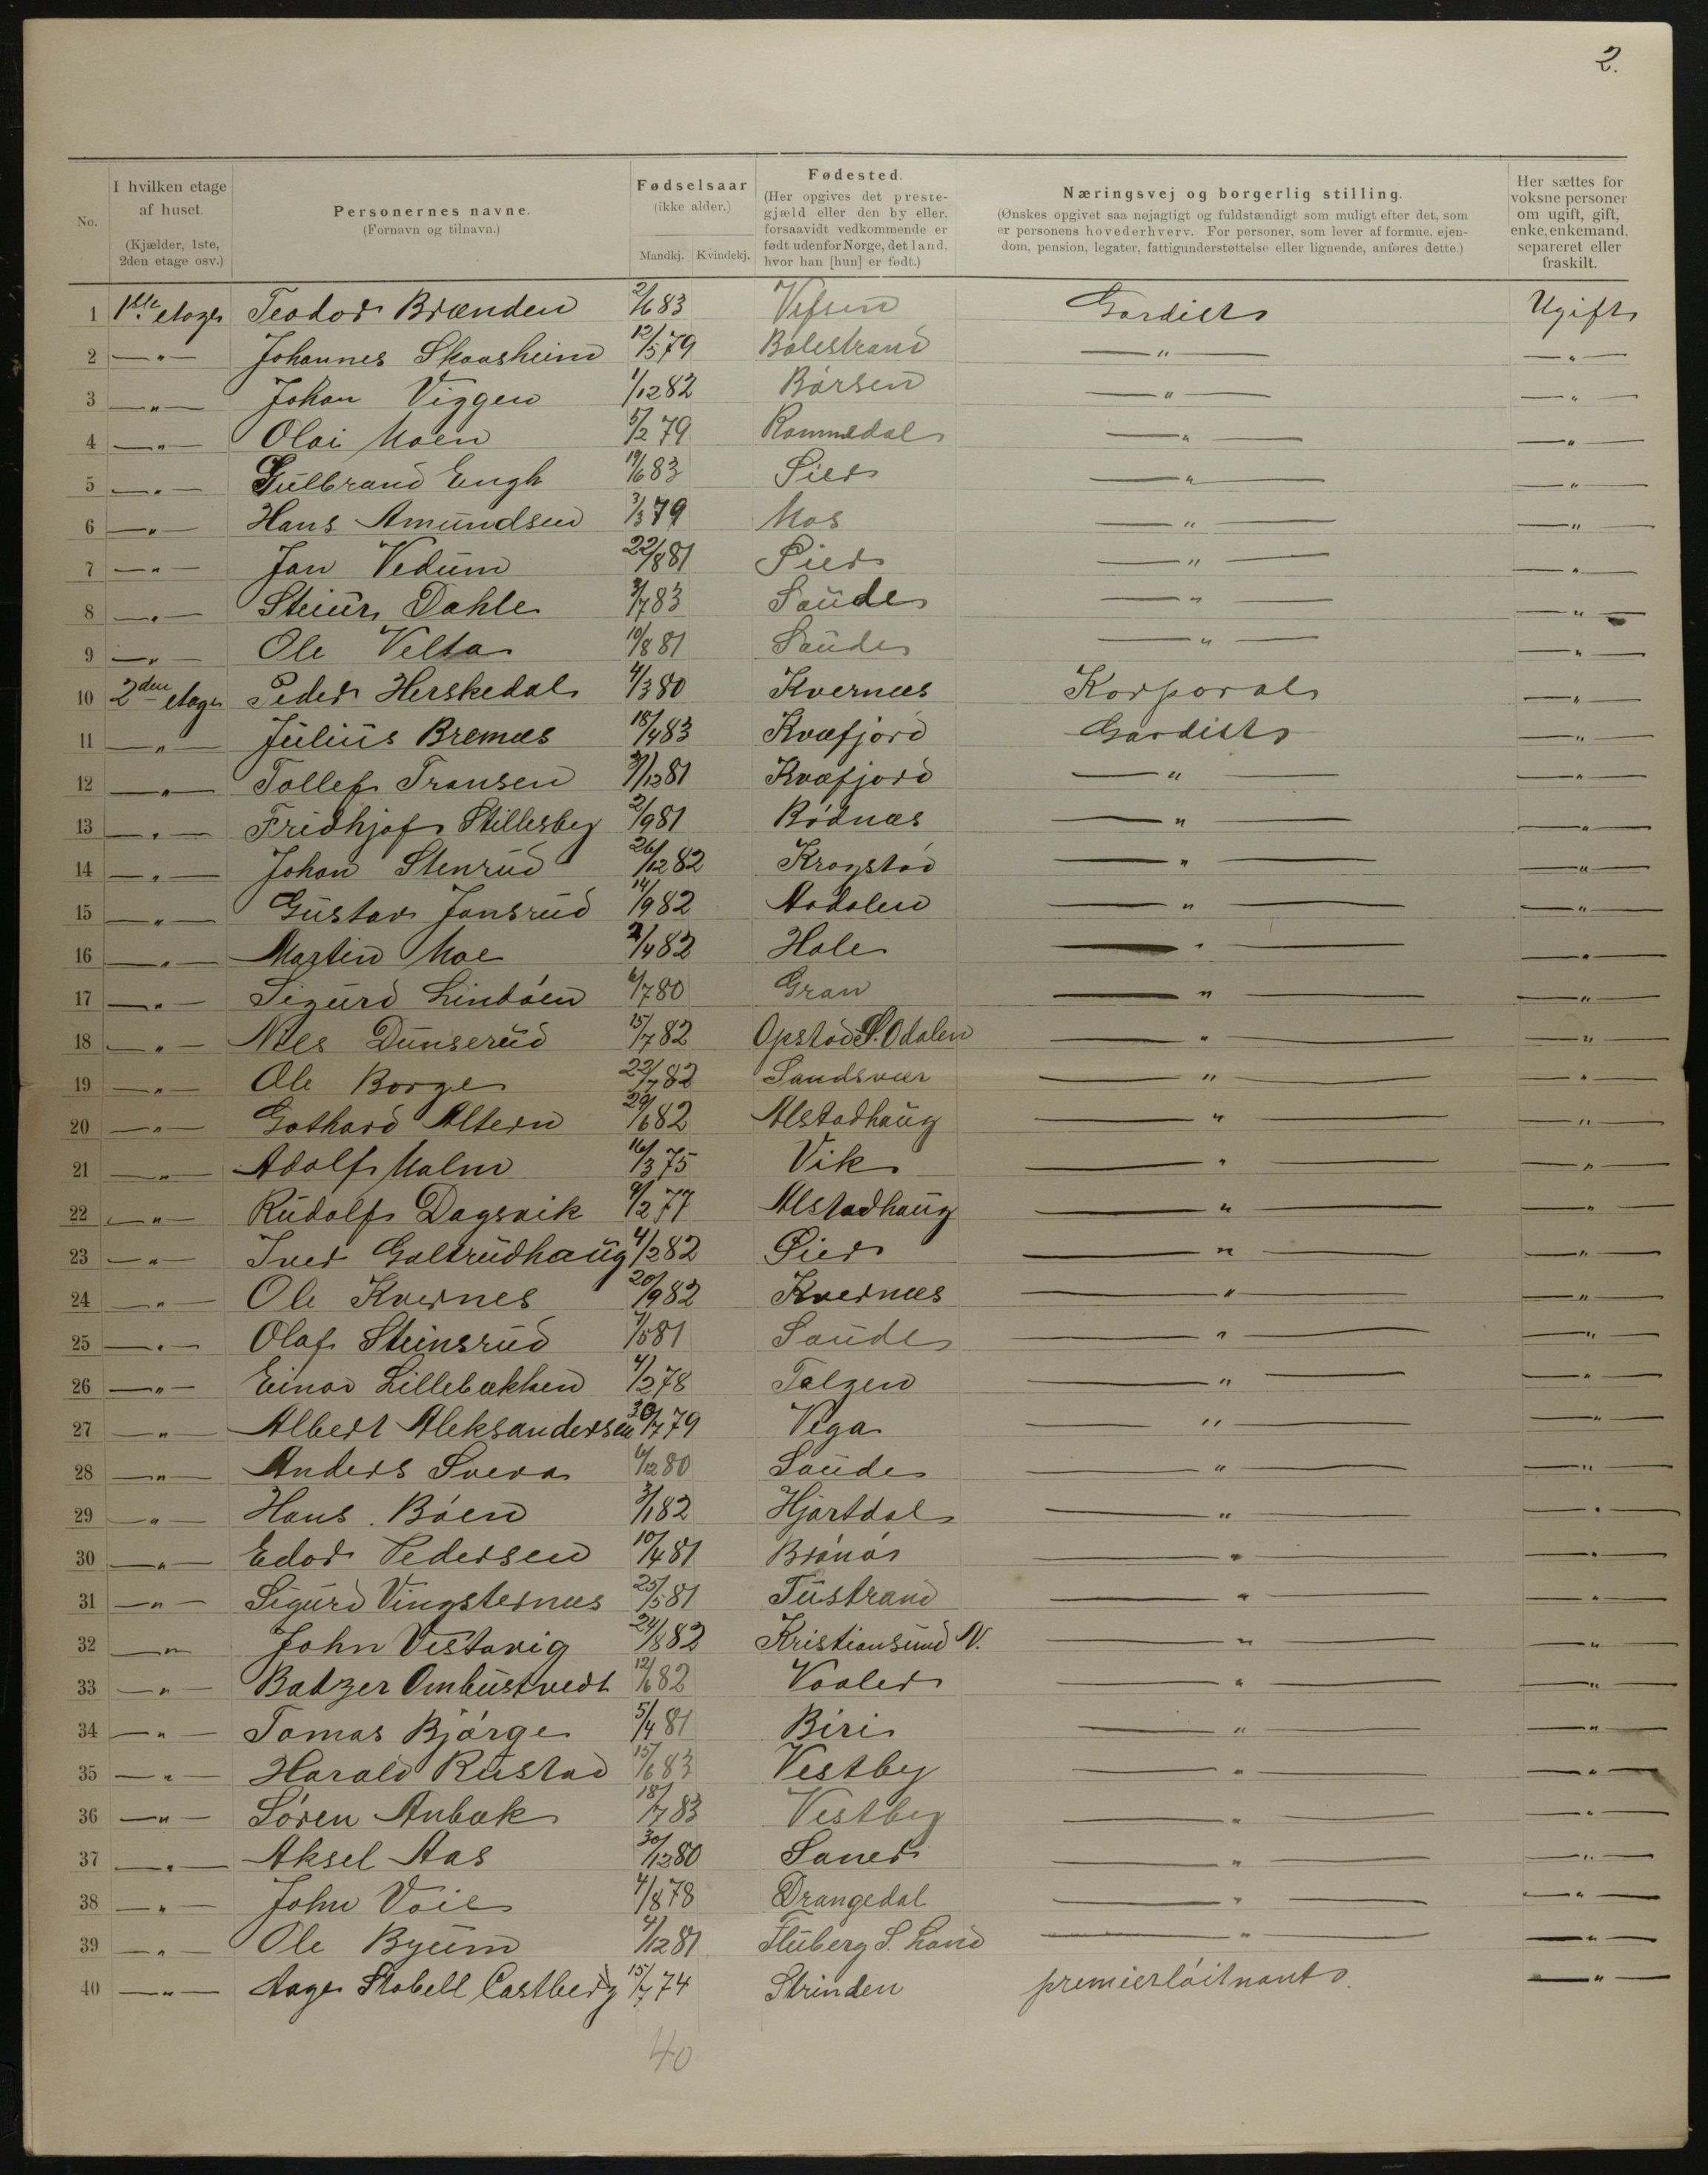 2.
No.
I hvilken etage af huset. (Kjælder, 1ste, 2den etage osv.)
Personernes navne. (Fornavn og tilnavn.)
Fødselsaar (ikke alder.) Mandkj. Kvindekj.
Fødested. (Her opgives det prestegjæld eller den by eller, forsaavidt vedkommende er født udenfor Norge, det land, hvor han [hun] er født.)
Næringsvej og borgerlig stilling. (Ønskes opgivet saa nøjagtigt og fuldstændigt som muligt efter det, som er personens hovederhverv. For personer, som lever af formue, ejendom, pension, legater, fattigunderstøttelse eller lignende, anføres dette.)
Her sættes for voksne personer om ugift, gift, enke, enkemand, separeret eller fraskilt.
1 1ste etage Teodor Brænden 2/6 83 Vefsen Gardist Ugift
2 —"— Johannes Skaasheim 12/5 79 Balestrand —"— —"—
3 —"— Johan Viggen 1/12 82 Børsen —"— —"—
4 —"— Olai Moen 5/2 79 Rommedal —"— —"—
5 —"— Gulbrand Engh 19/6 83 Øier —"— —"—
6 —"— Hans Amundsen 3/3 79 Mos —"— —"—
7 —"— Jan Vedum 22/8 81 Øier —"— —"—
8 —"— Steiur Dahle 3/7 83 Saude —"— —"—
9 —"— Ole Velta 10/8 81 Saude —"— —"—
10 2den etage Peder Herskedal 4/3 80 Kvernæs Korporal —"—
11 —"— Julius Bremæs 18/4 83 Kvæfjord Gardist —"—
12 —"— Tollef Transen 31/12 81 Kvæfjord —"— —"—
13 —"— Fridhjof Stillesby 2/9 81 Rødnæs —"— —"—
14 —"— Johan Stenrud 26/12 82 Krogstad —"— —"—
15 —"— Gustav Jansrud 14/9 82 Aadalen —"— —"—
16 —"— Martin Moe 2/4 82 Hole —"— —"—
17 —"— Sigurd Lindøen 6/7 80 Gran —"— —"—
18 —"— Nils Dunserud 15/7 82 Opstad S. Odalen —"— —"—
19 —"— Ole Borge 22/7 82 Sandsvær —"— —"—
20 —"— Gothard Altern 29/6 82 Alstadhaug —"— —"—
21 —"— Adolf Malm 16/3 75 Vik —"— —"—
22 —"— Rudolf Dagsvik 9/2 77 Alstadhaug —"— —"—
23 —"— Iver Galtrudhaug 4/2 82 Øier —"— —"—
24 —"— Ole Kvernes 20/9 82 Kvernæs —"— —"—
25 —"— Olaf Steinsrud 7/5 81 Saude —"— —"—
26 —"— Einar Lillebækken 4/2 78 Tolgen —"— —"—
27 —"— Albert Aleksandersen 30/7 79 Vega —"— —"—
28 —"— Anders Svera 6/12 80 Saude —"— —"—
29 —"— Hans Bøen 3/1 82 Hjartdal —"— —"—
30 —"— Edor Pedersen 10/4 81 Brønøs —"— —"—
31 —"— Sigurd Vingsternæs 25/5 81 Tustrand —"— —"—
32 —"— John Vestavig 24/8 82 Kristiansund N. —"— —"—
33 —"— Batzer Ombustvedt 12/6 82 Vaaler —"— —"—
34 —"— Tomas Bjørge 5/4 81 Biri —"— —"—
35 —"— Harald Rustad 15/6 83 Vestby —"— —"—
36 —"— Søren Anbæk 18/7 83 Vestby —"— —"—
37 —"— Aksel Aas 30/12 80 Saner —"— —"—
38 —"— John Voie 4/8 78 Drangedal —"— —"—
39 —"— Ole Byum 4/12 81 Fluberg S. Land —"— —"—
40 —"— Aage Stabell Castberg 15/7 74 Strinden premierløitnant. —"—
40